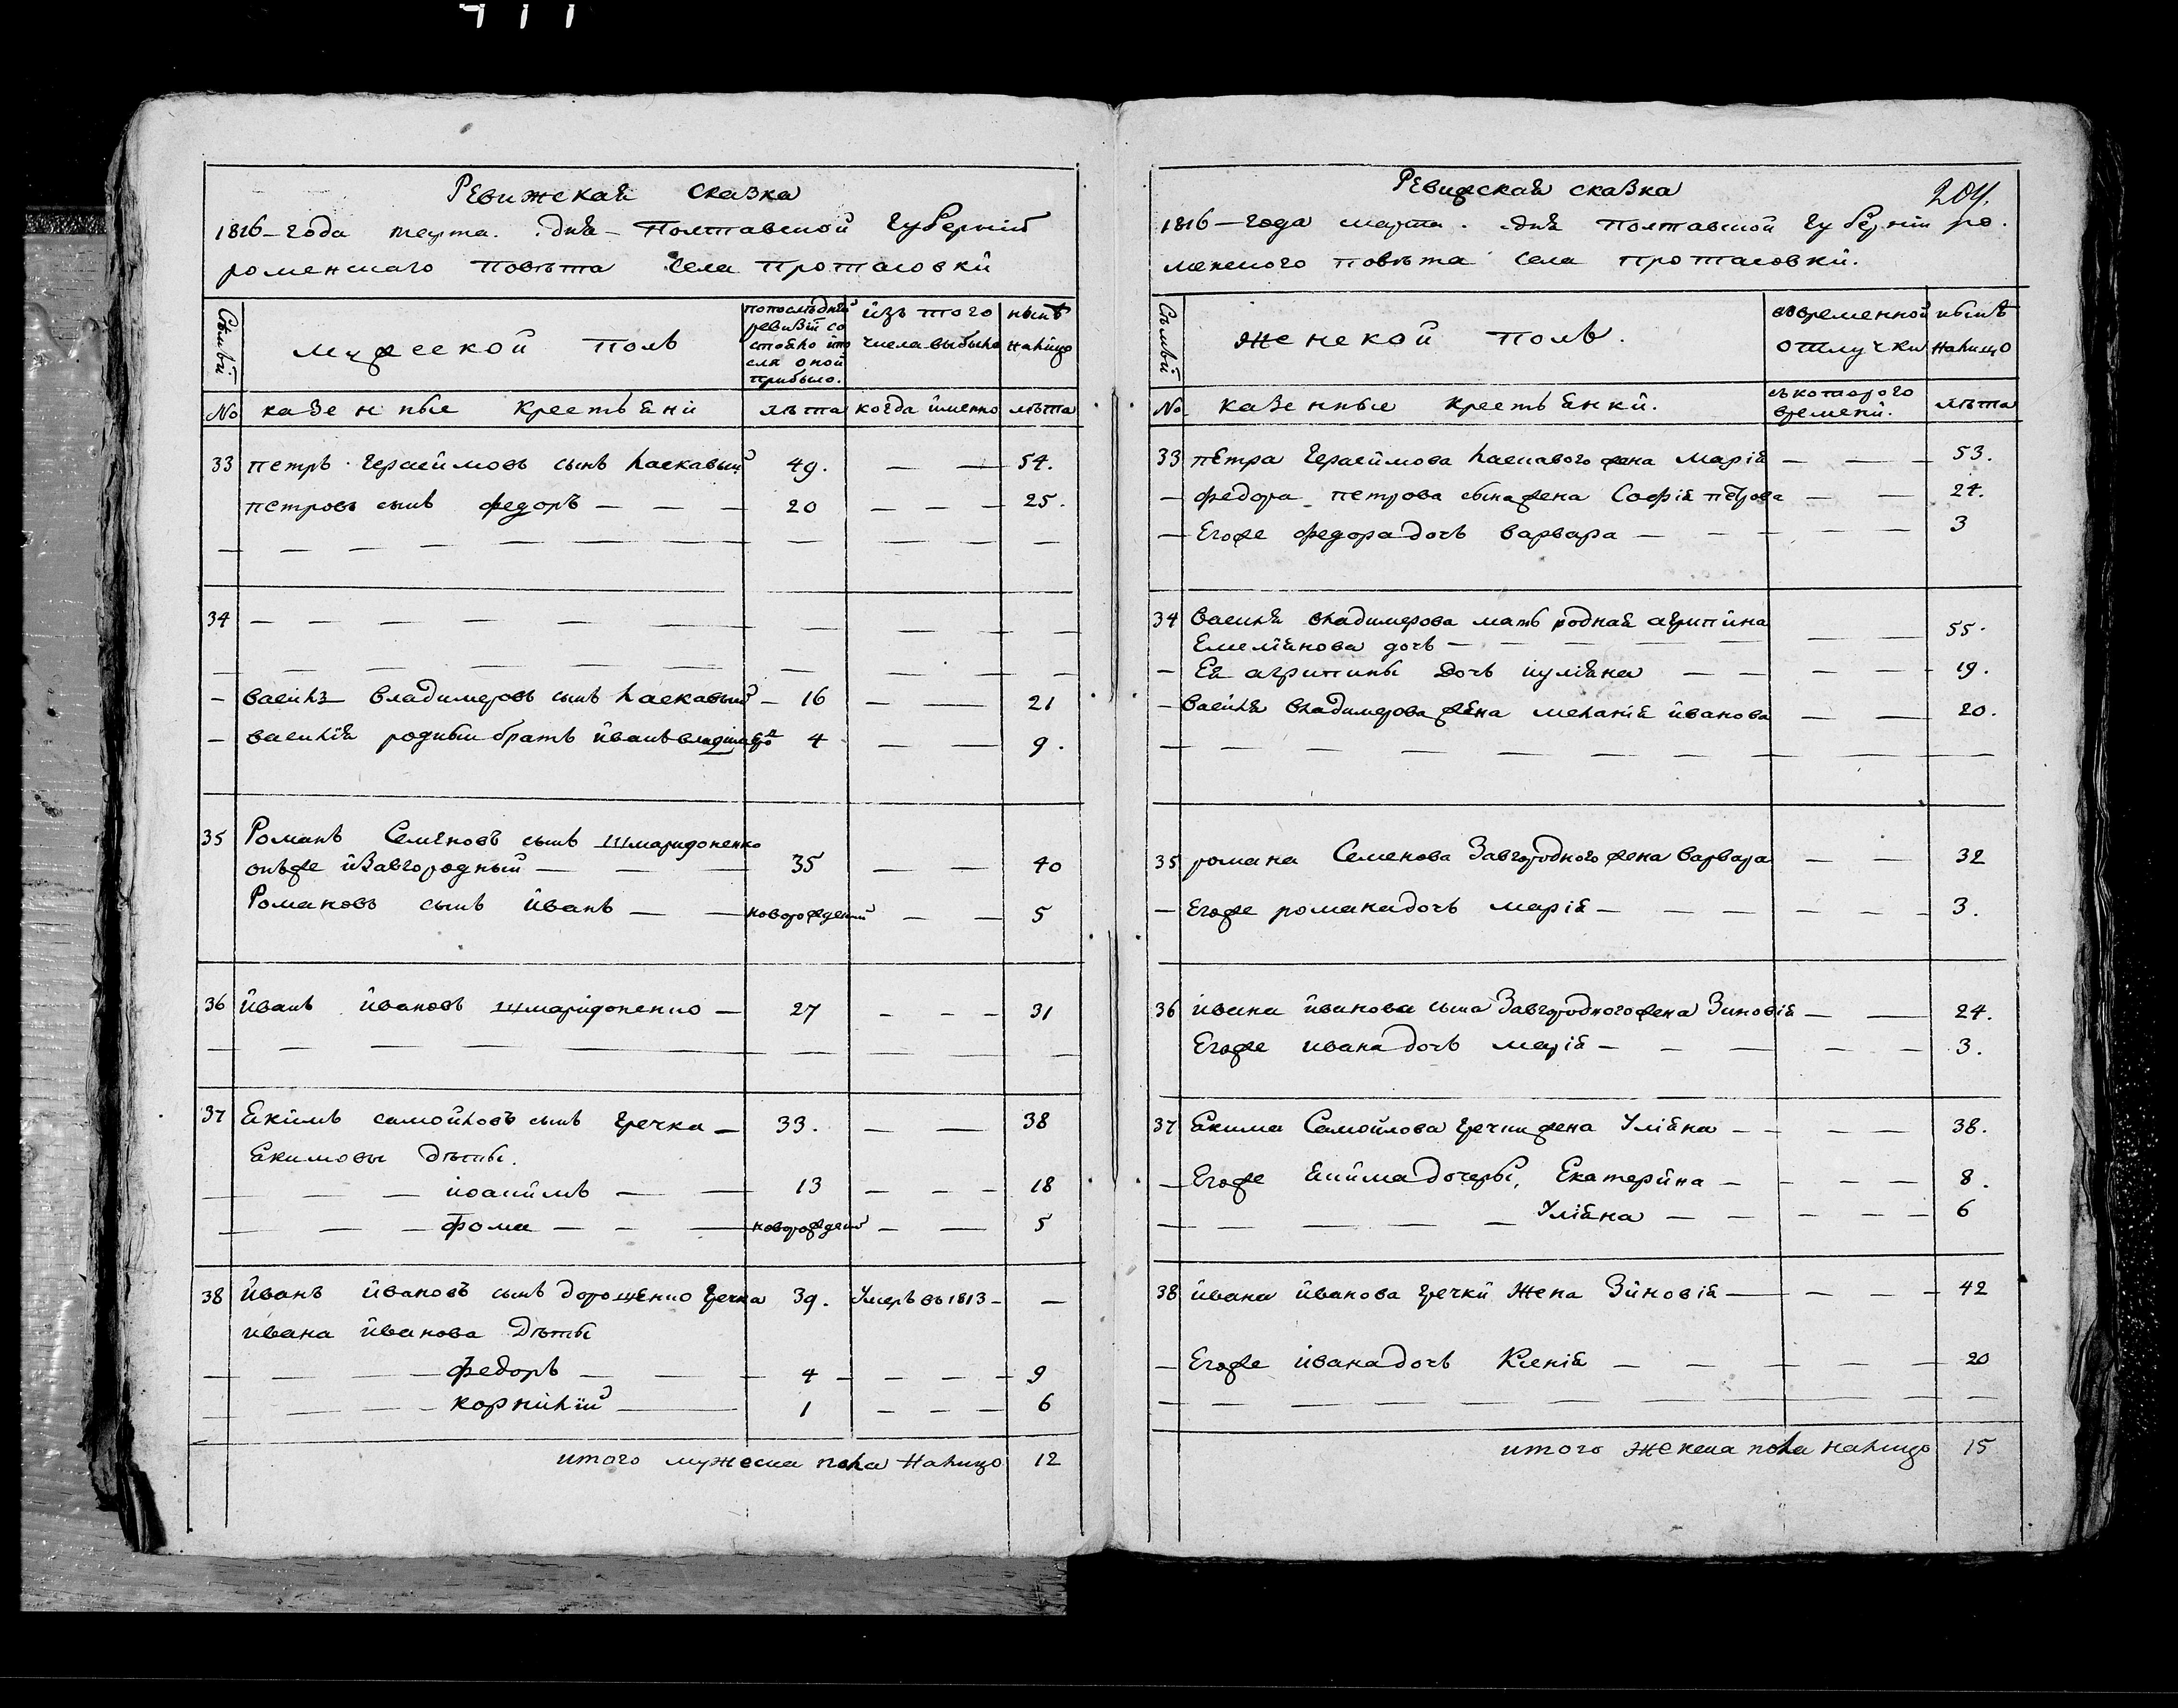 Ревижская сказка
1816-года марта. дня Полтавской губерніи
роменскаго повѣта села протасовки
Сѣмьи
мужеской полъ
попослѣдней ревизіи состояло ито сля оной прибыло.
изъ того числа выбыло
нынѣ налицо
№ казенные крестьяни лѣта когда именно лѣта
33 петръ герасимовъ сынъ ласкавый 49. — — 54.
петровъ сынъ федоръ — — — 20 — — — 25.
34
— василь владимеровъ сынъ ласкавый — 16 — — 21
— василія родный братъ иванъ владимеро 4 — — 9.
35 Романъ Семеновъ сынъ Шмаридоненко
онъже изавгородный — — — 35 — — 40
Романовъ сынъ иванъ — — новорожденый — — 5
36 иванъ ивановъ шмаридоненко — 27 — — — 31
37 Якимъ самойловъ сынъ гречка — 33. — — 38
Якимовы дѣты.
— — — иоакимъ — — 13 — — — 18
— — — фома — — — новорожденый — — 5
38 иванъ ивановъ сынъ дорошенко гречка 39. Умеръ въ 1813 — —
ивана иванова дѣты
— — — — федоръ — — — 4 — — — — 9
— — — — корнилій — 1 — — — 6
итого мужеска пола налицо 12
Ревижская сказка
204.
1816-года марта. дня полтавской губерніи ро.
менского повѣта села протасовки.
Сѣмьи
женской полъ.
вовременной отлучки
нынѣ налицо
№ казенные крестьянки. съкоторого времени. лѣта
33 петра герасимова ласкавого жена марія — — — 53.
— федора петрова сына жена Софія петрова — — 24.
— Егоже федора дочь варвара — — — — — 3
34 василя владимерова мать родная агрипина
Емеліянова дочь — — — 55.
— Ея агрипины дочь иуліяна — — — — — 19.
— василя владимерова жена меланія иванова — — 20.
35 романа Семенова Завгородного жена варвара — — 32
— Егоже романа дочь марія — — — — — — — 3.
36 ивана иванова сына Завгородного жена Зиновія — — 24.
Егоже ивана дочь марія — — — — — — 3.
37 Якима Самойлова гречки жена Уліяна — — — — 38.
— Егоже Якима дочеры, Екатерина — — — — 8.
— — — — — Уліяна — — — — — — 6
38 ивана иванова гречки жена Зиновія — — — — 42
— Егоже ивана дочь Ксенія — — — — — 20
итого женска пола налицо 15